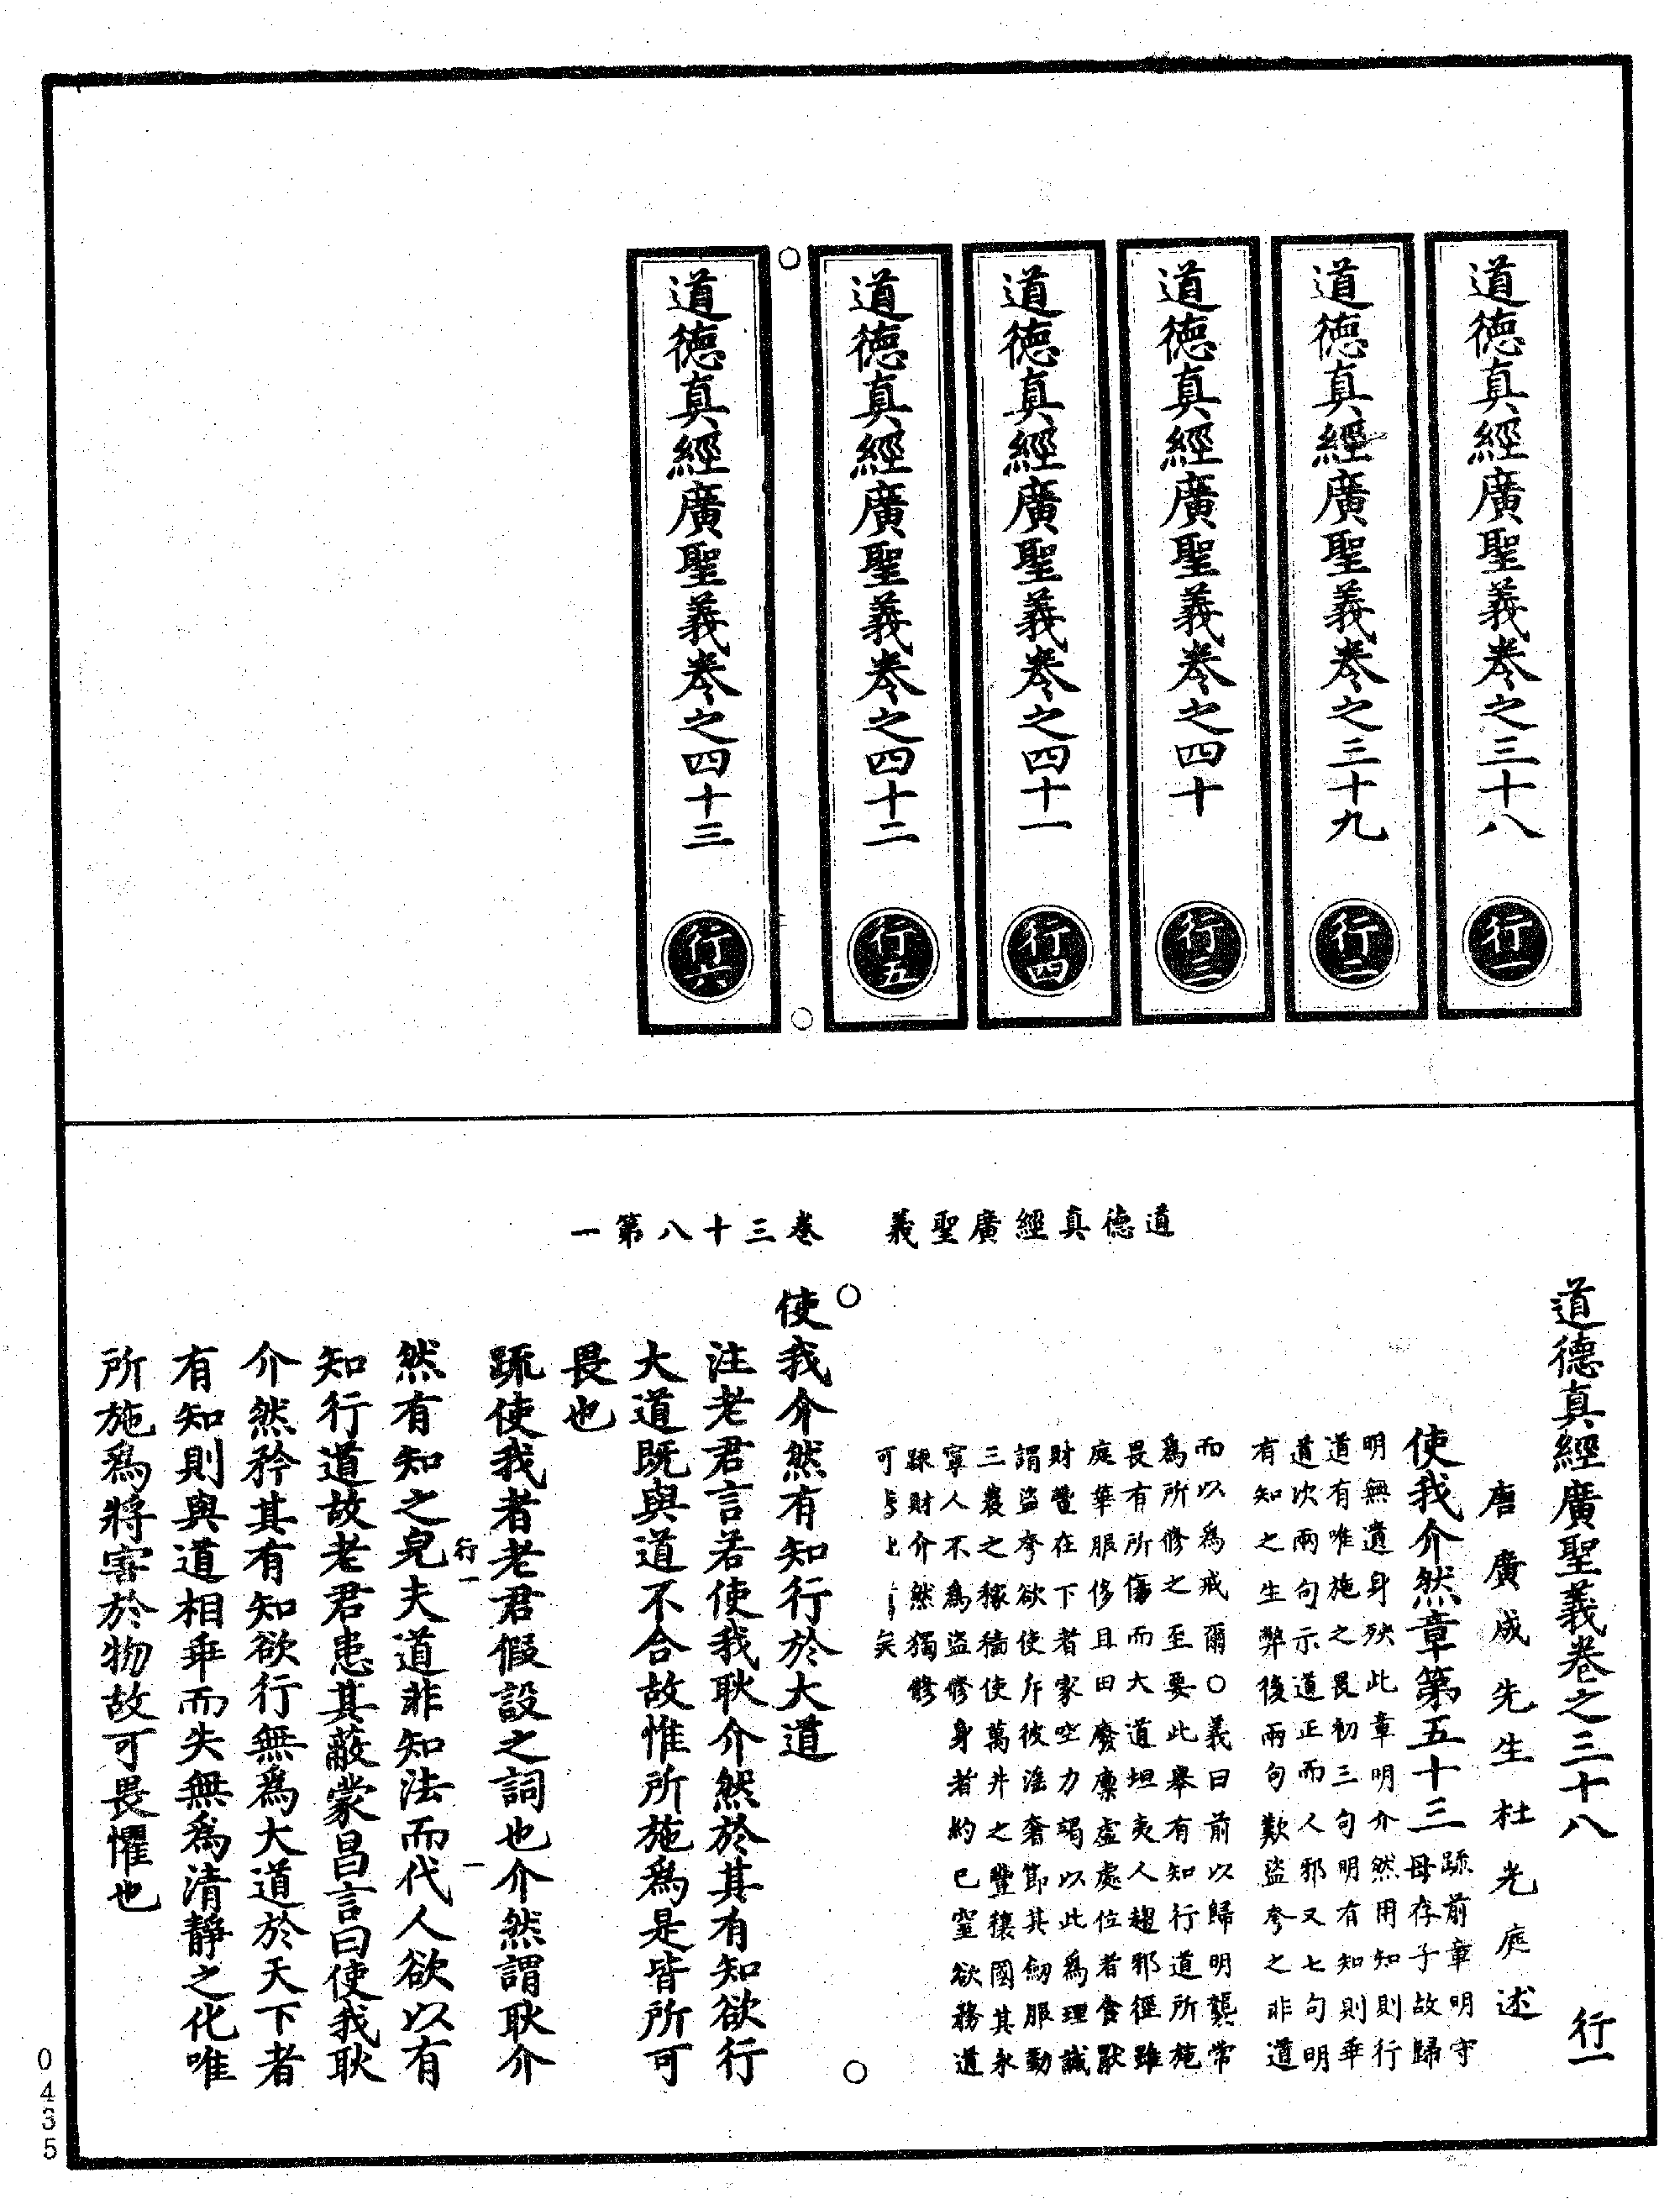 道德真經廣聖義卷之三十八 行一
道德真經廣聖義卷之三十九 行二
道德真經廣聖義卷之四十 行三
道德真經廣聖義卷之四十一 行四
道德真經廣聖義卷之四十二 行五
道德真經廣聖義卷之四十三 行六
道德真經廣聖義 卷三十八第一
道德真經廣聖義卷之三十八 行一
唐廣成先生杜光庭述
使我介然章第五十三
疏前章明守
母存子故歸
明無遺身殃此章明介然用知則行
道有唯施之畏初三句明有知則乖
道次兩句示道正而人邪又七句明
有知之生弊後兩句歎盜夸之非道
而以為戒爾○義曰前以歸明襲常
爲所修之至要此舉有知行道所施
畏有所傷而大道坦夷人趨邪徑雖
庭華服侈且田廢廩虛處位者食猒
財豐在下者家空力竭以此爲理誠
謂盜夸欲使斥彼滛奢節其飾服勤
三農之稼穡使萬井之豐穰國其永
寧人不為盜修身者約已窒欲務道
踈財介然獨修
可 矣
使我介然有知行於大道
注老君言若使我耿介然於其有知欲行
大道既與道不合故惟所施爲是皆所可
畏也
疏使我者老君假設之詞也介然謂耿介
然有知之皃夫道非知法而代人欲以有
行一 一
知行道故老君患其蔽蒙昌言曰使我耿
介然矜其有知欲行無為大道於天下者
有知則與道相乖而失無為清靜之化唯
所施爲將害於物故可畏懼也
0435